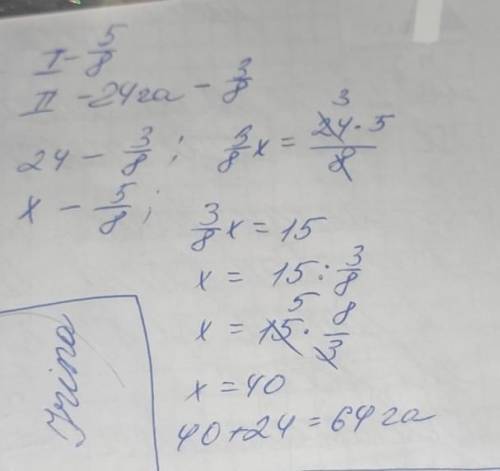 I - 5/8
II - 24 га - 3/8
24 - 3/8 ; 3/8 x = 24 · 5 / 8
3
x - 5/8 ;
3/8 x = 15
x = 15 : 3/8
x = 15 · 8/3
5
x = 40
40 + 24 = 64 га
Irina